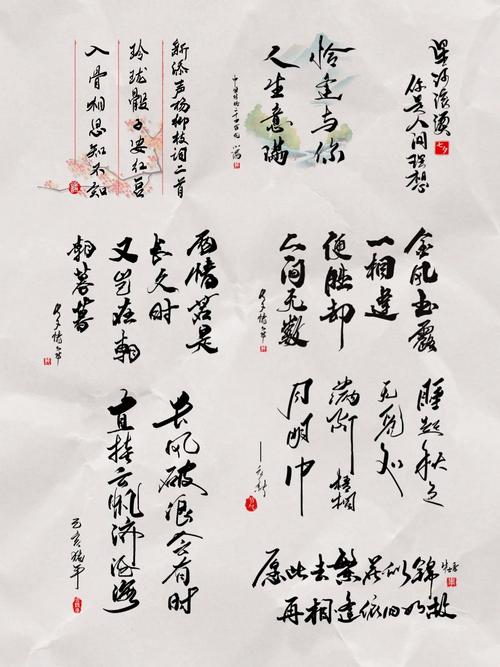 星河滚烫
你是人间理想
七夕
恰逢与你
人生意满
小满
新添声杨柳枝词二首
玲珑骰子安红豆
入骨相思知不知
金风玉露
一相逢
便胜却
人间无数
七夕情人节
两情若是
长久时
又岂在朝
朝暮暮
七夕情人节
睡起秋声
无觅处
满阶
梧桐
月明中
—立秋
长风破浪会有时
直挂云帆济沧海
己亥猪年
愿此去繁花似锦
再相逢依旧如故
毕业季